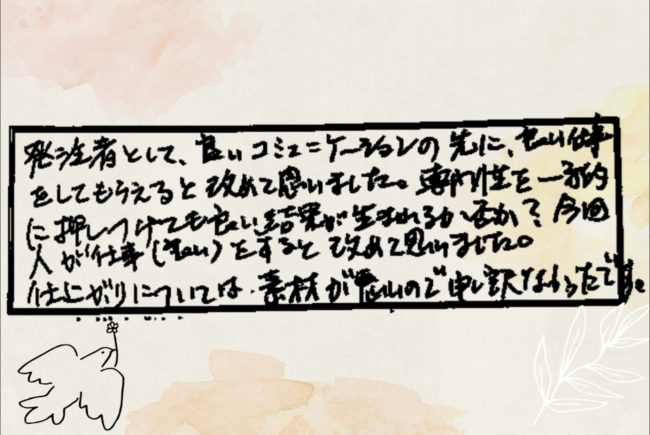 発注者として、良いコミュニケーションの先に、良い仕事
をしてもらえると改めて思いました。専門性を一方的
に押しつけても良い結果が生まれるか否か？今回
人が仕事（良い）をすると改めて思いました。
仕上がりについては、素材が悪いので申し訳なかったです。